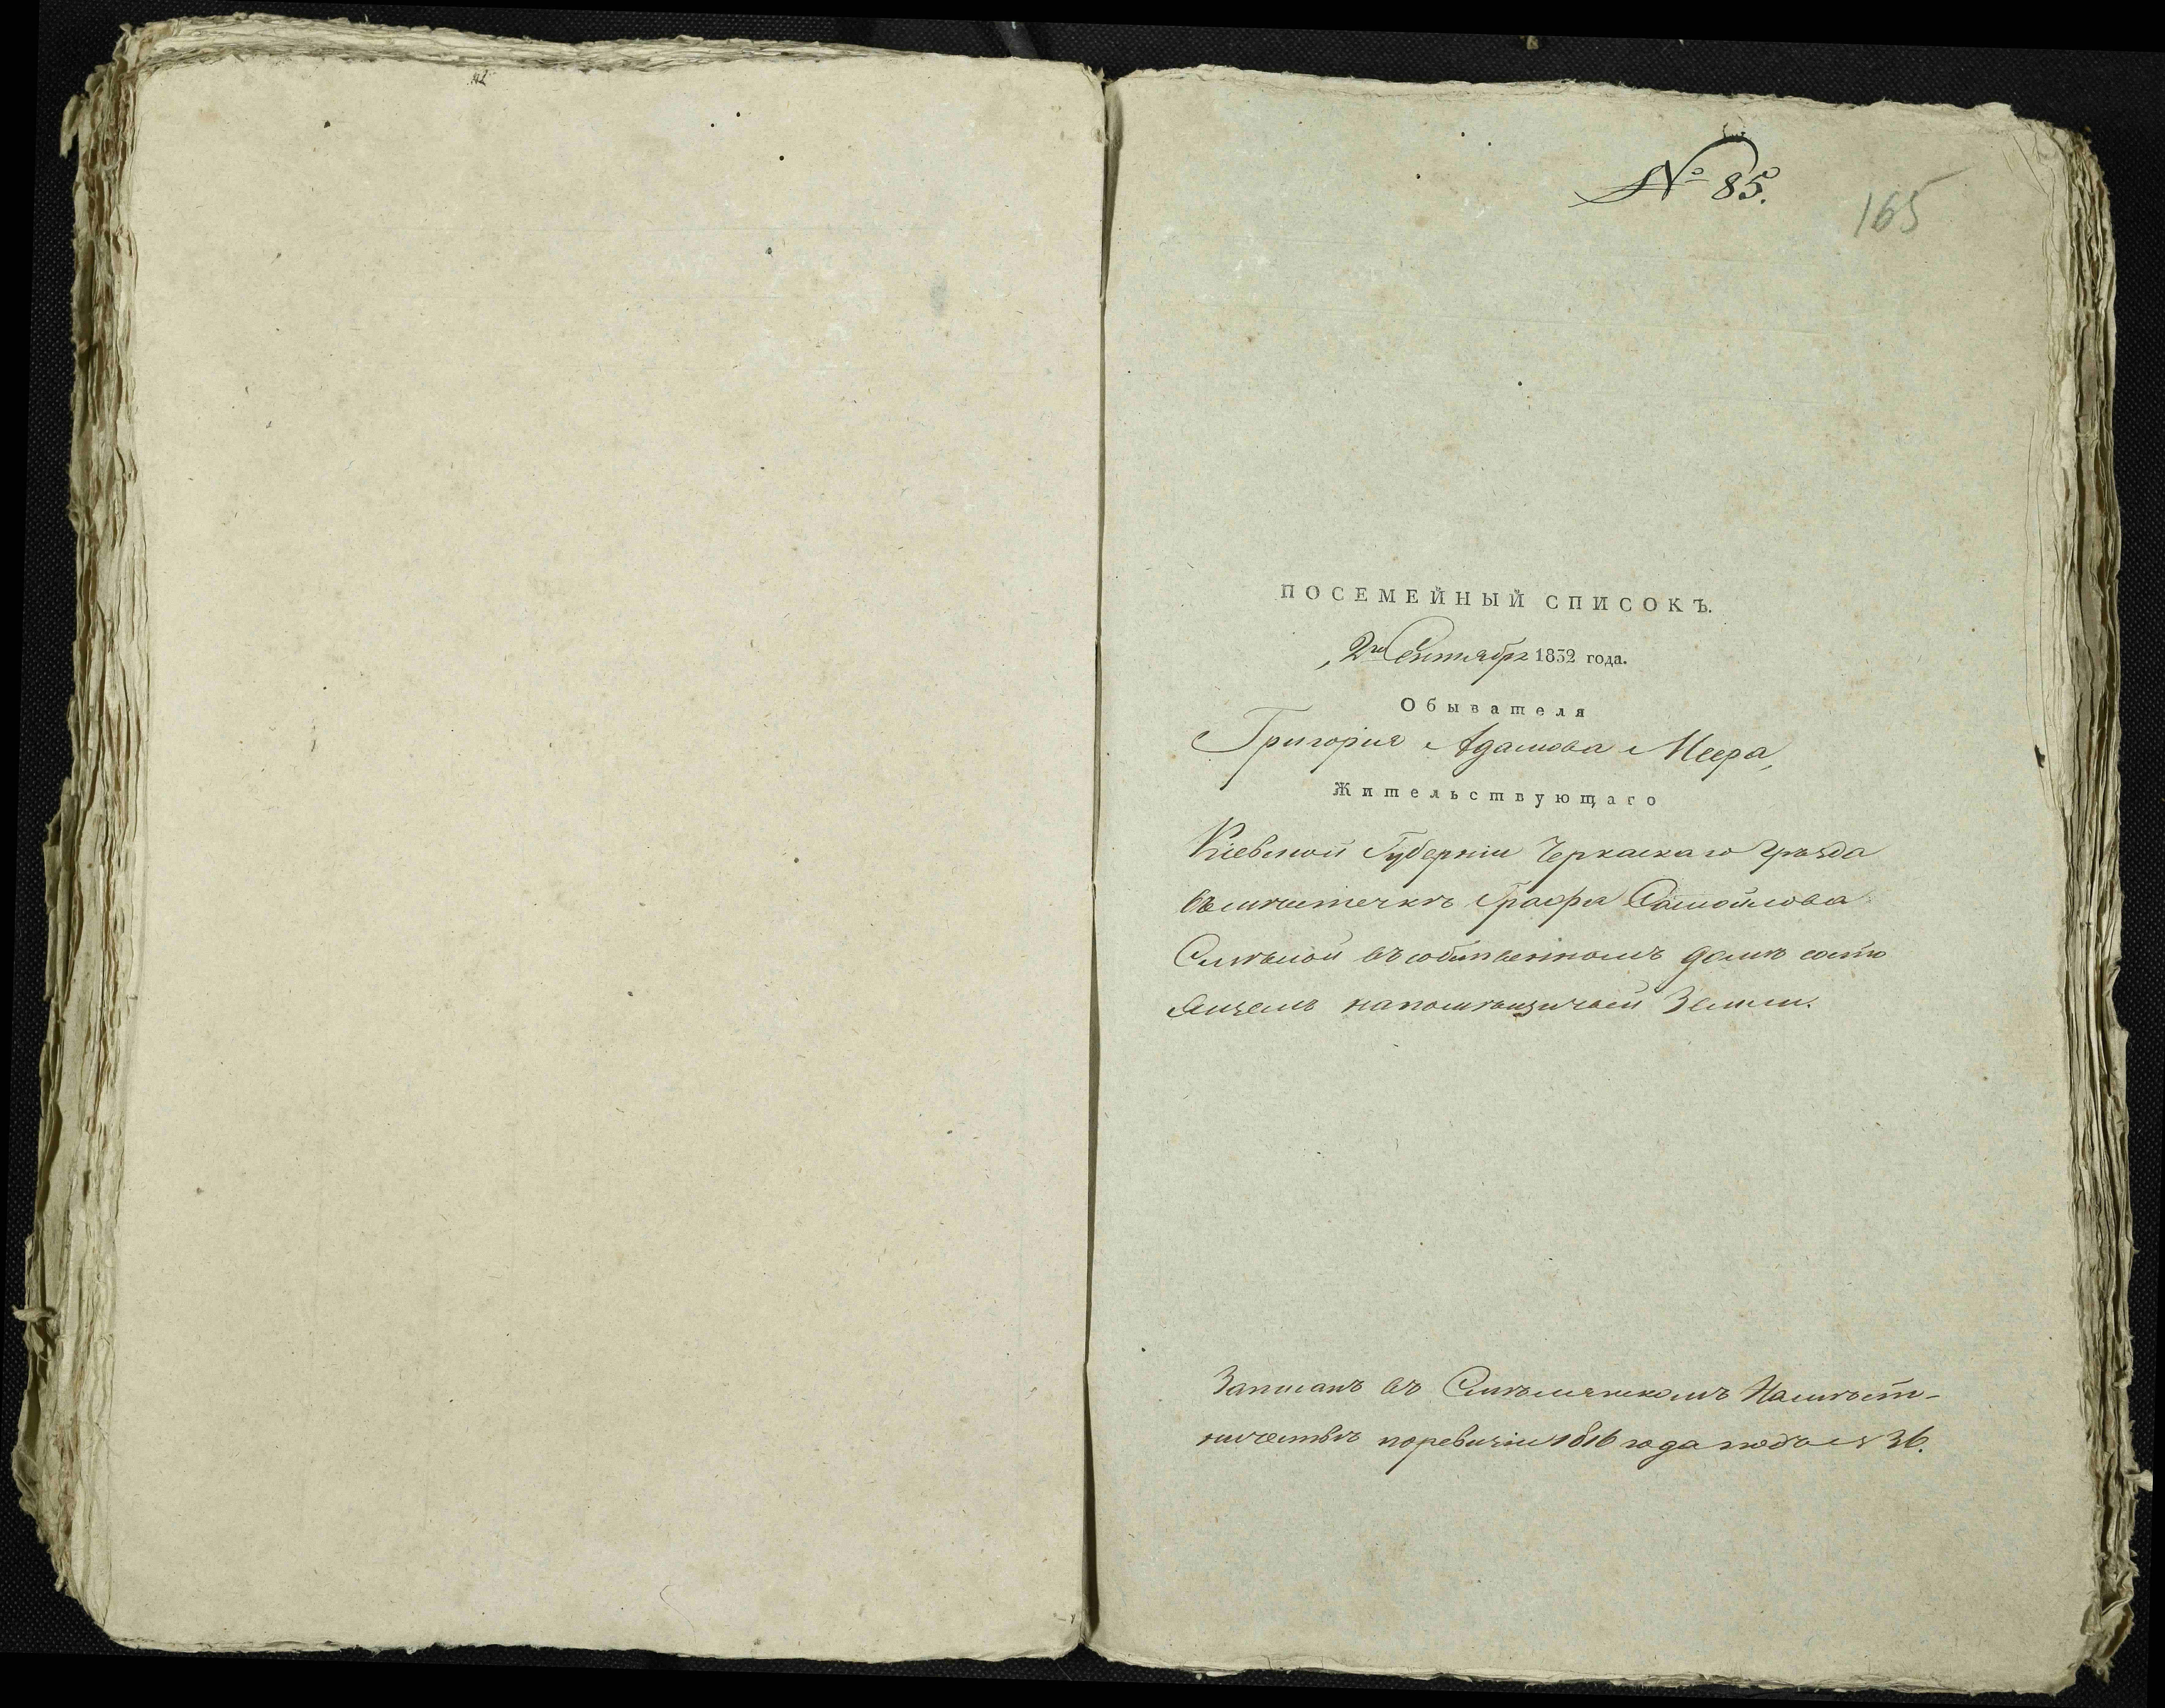 № 85.
165
ПОСЕМЕЙНЫЙ СПИСОКЪ.
2го Сентября 1832 года.
Обывателя
Григорія Адамова Меера,
Жительствующаго
Кіевской Губерніи Черкаскаго уѣзда
въ мѣстечкѣ Графа Самойлова
Смѣлой въ собственномъ домѣ состо
ящемъ на помѣщичьей Земли.
Записанъ въ Смѣлянскомъ Намѣст-
ничествѣ по ревизіи 1816 года подъ № 36.